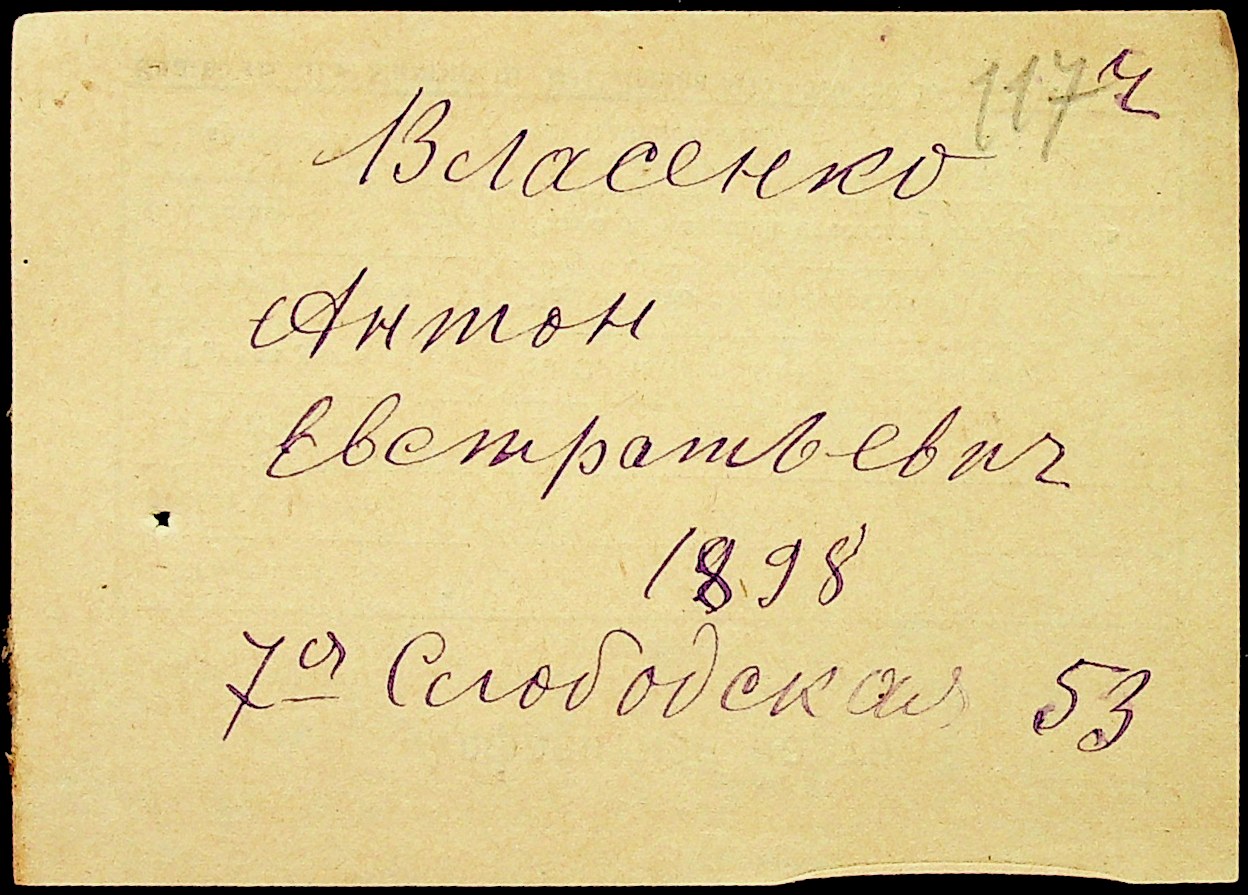 117 ч
Власенко
Антон
Евстратьевич
1898
7ая Слободская 53